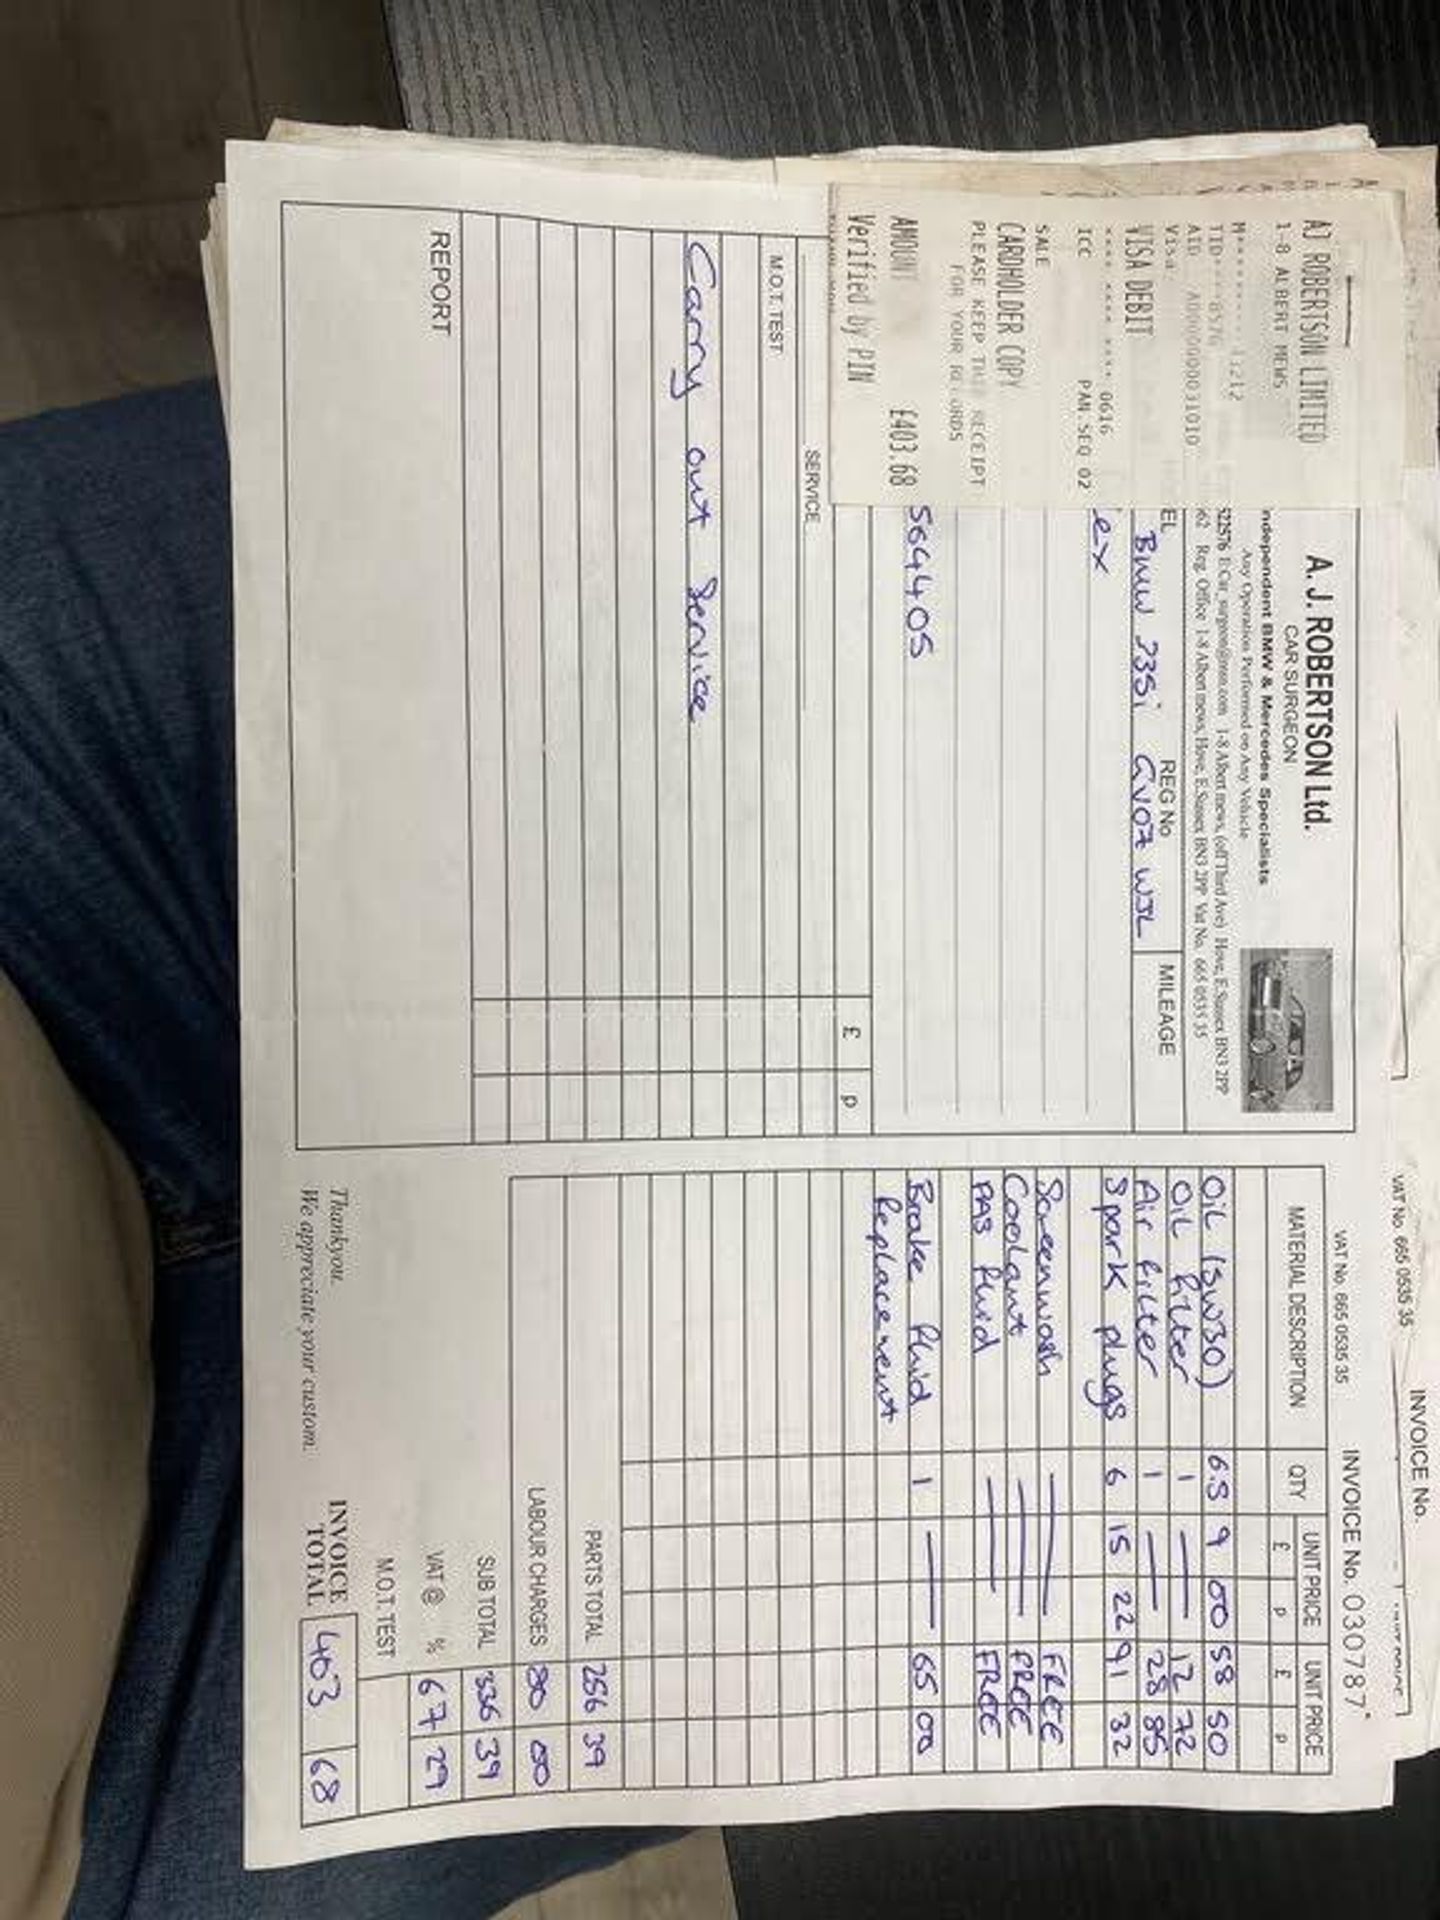 AJ ROBERTSON LIMITED
1-8 ALBERT MEWS
M**********43212
TID****8576
AID: A0000000031010
Visa
VISA DEBIT
**** **** **** 0616
ICC PAN.SEQ 02
SALE
CARDHOLDER COPY
PLEASE KEEP THIS RECEIPT
FOR YOUR RECORDS
AMOUNT £403.68
Verified by PIN
A. J. ROBERTSON Ltd.
CAR SURGEON
ndependent BMW & Mercedes Specialists
Any Operation Performed on Any Vehicle
522576 E:Car_surgeon@msn.com 1-8 Albert mews, (off Third Ave) Hove, E.Sussex BN3 2PP
62 Reg. Office 1-8 Albert mews, Hove, E.Sussex BN3 2PP Vat No. 665 0535 35
EL REG No MILEAGE
BMW 735i GV07 WJL
ex
564405
£ p
SERVICE
M.O.T. TEST
Carry out Service
REPORT
VAT No. 665 0535 35
INVOICE No.
VAT No. 665 0535 35 INVOICE No. 030787
MATERIAL DESCRIPTION QTY UNIT PRICE UNIT PRICE
£ p £ p
Oil (5W30) 6.5 9 00 58 50
Oil filter 1 — 12 72
Air filter 1 — 28 85
Spark plugs 6 15 22 91 32
Screenwash — FREE
Coolant — FREE
PAS fluid — FREE
Brake fluid 1 — 65 00
Replacement
PARTS TOTAL 256 39
LABOUR CHARGES 80 00
SUB TOTAL 336 39
VAT @ % 67 29
M.O.T. TEST
INVOICE
TOTAL 403 68
Thankyou.
We appreciate your custom.